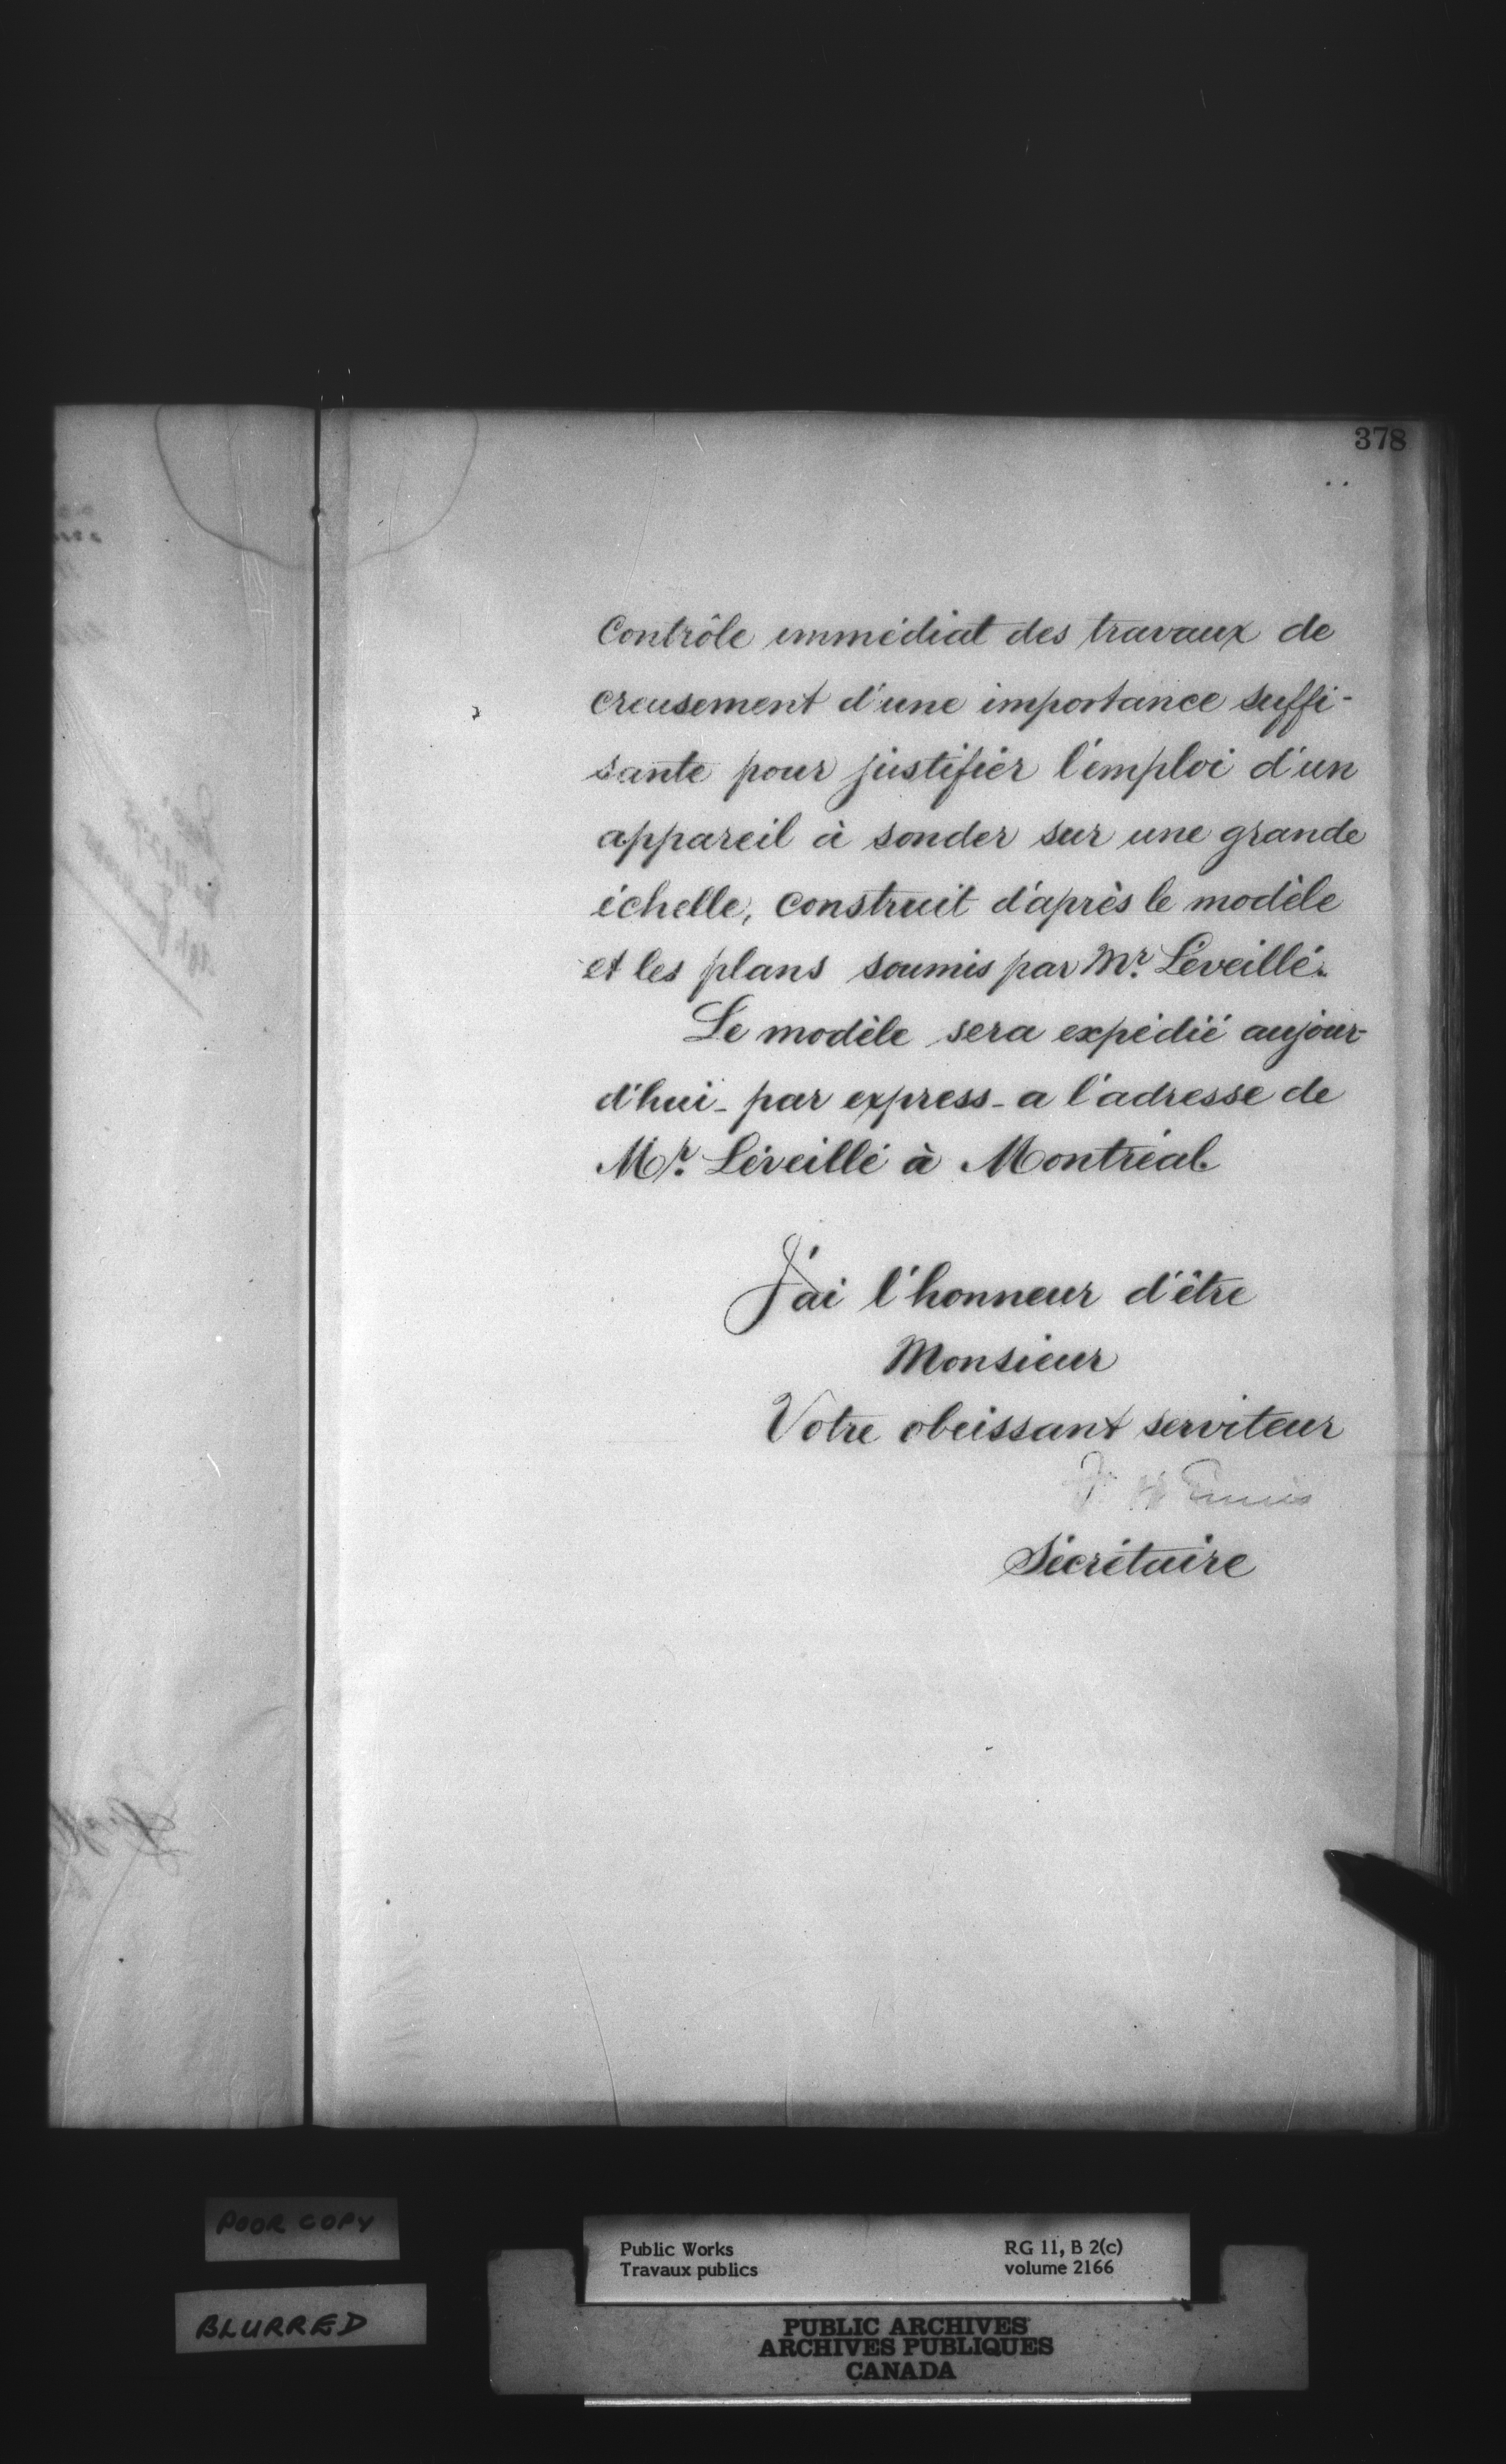 378
Contrôle immédiat des travaux de
creusement d'une importance suffi-
sante pour justifier l'emploi d'un
appareil à sonder sur une grande
échelle, construit d'après le modèle
et les plans soumis par Mr. Léveillé.
Le modèle sera expédié aujour-
d'hui - par express - a l'adresse de
Mr. Léveillé à Montréal.
J'ai l'honneur d'être
Monsieur
Votre obeissant serviteur
Ennis
Sécrétaire
POOR COPY
BLURRED
Public Works
Travaux publics
RG 11, B 2(c)
volume 2166
PUBLIC ARCHIVES
ARCHIVES PUBLIQUES
CANADA